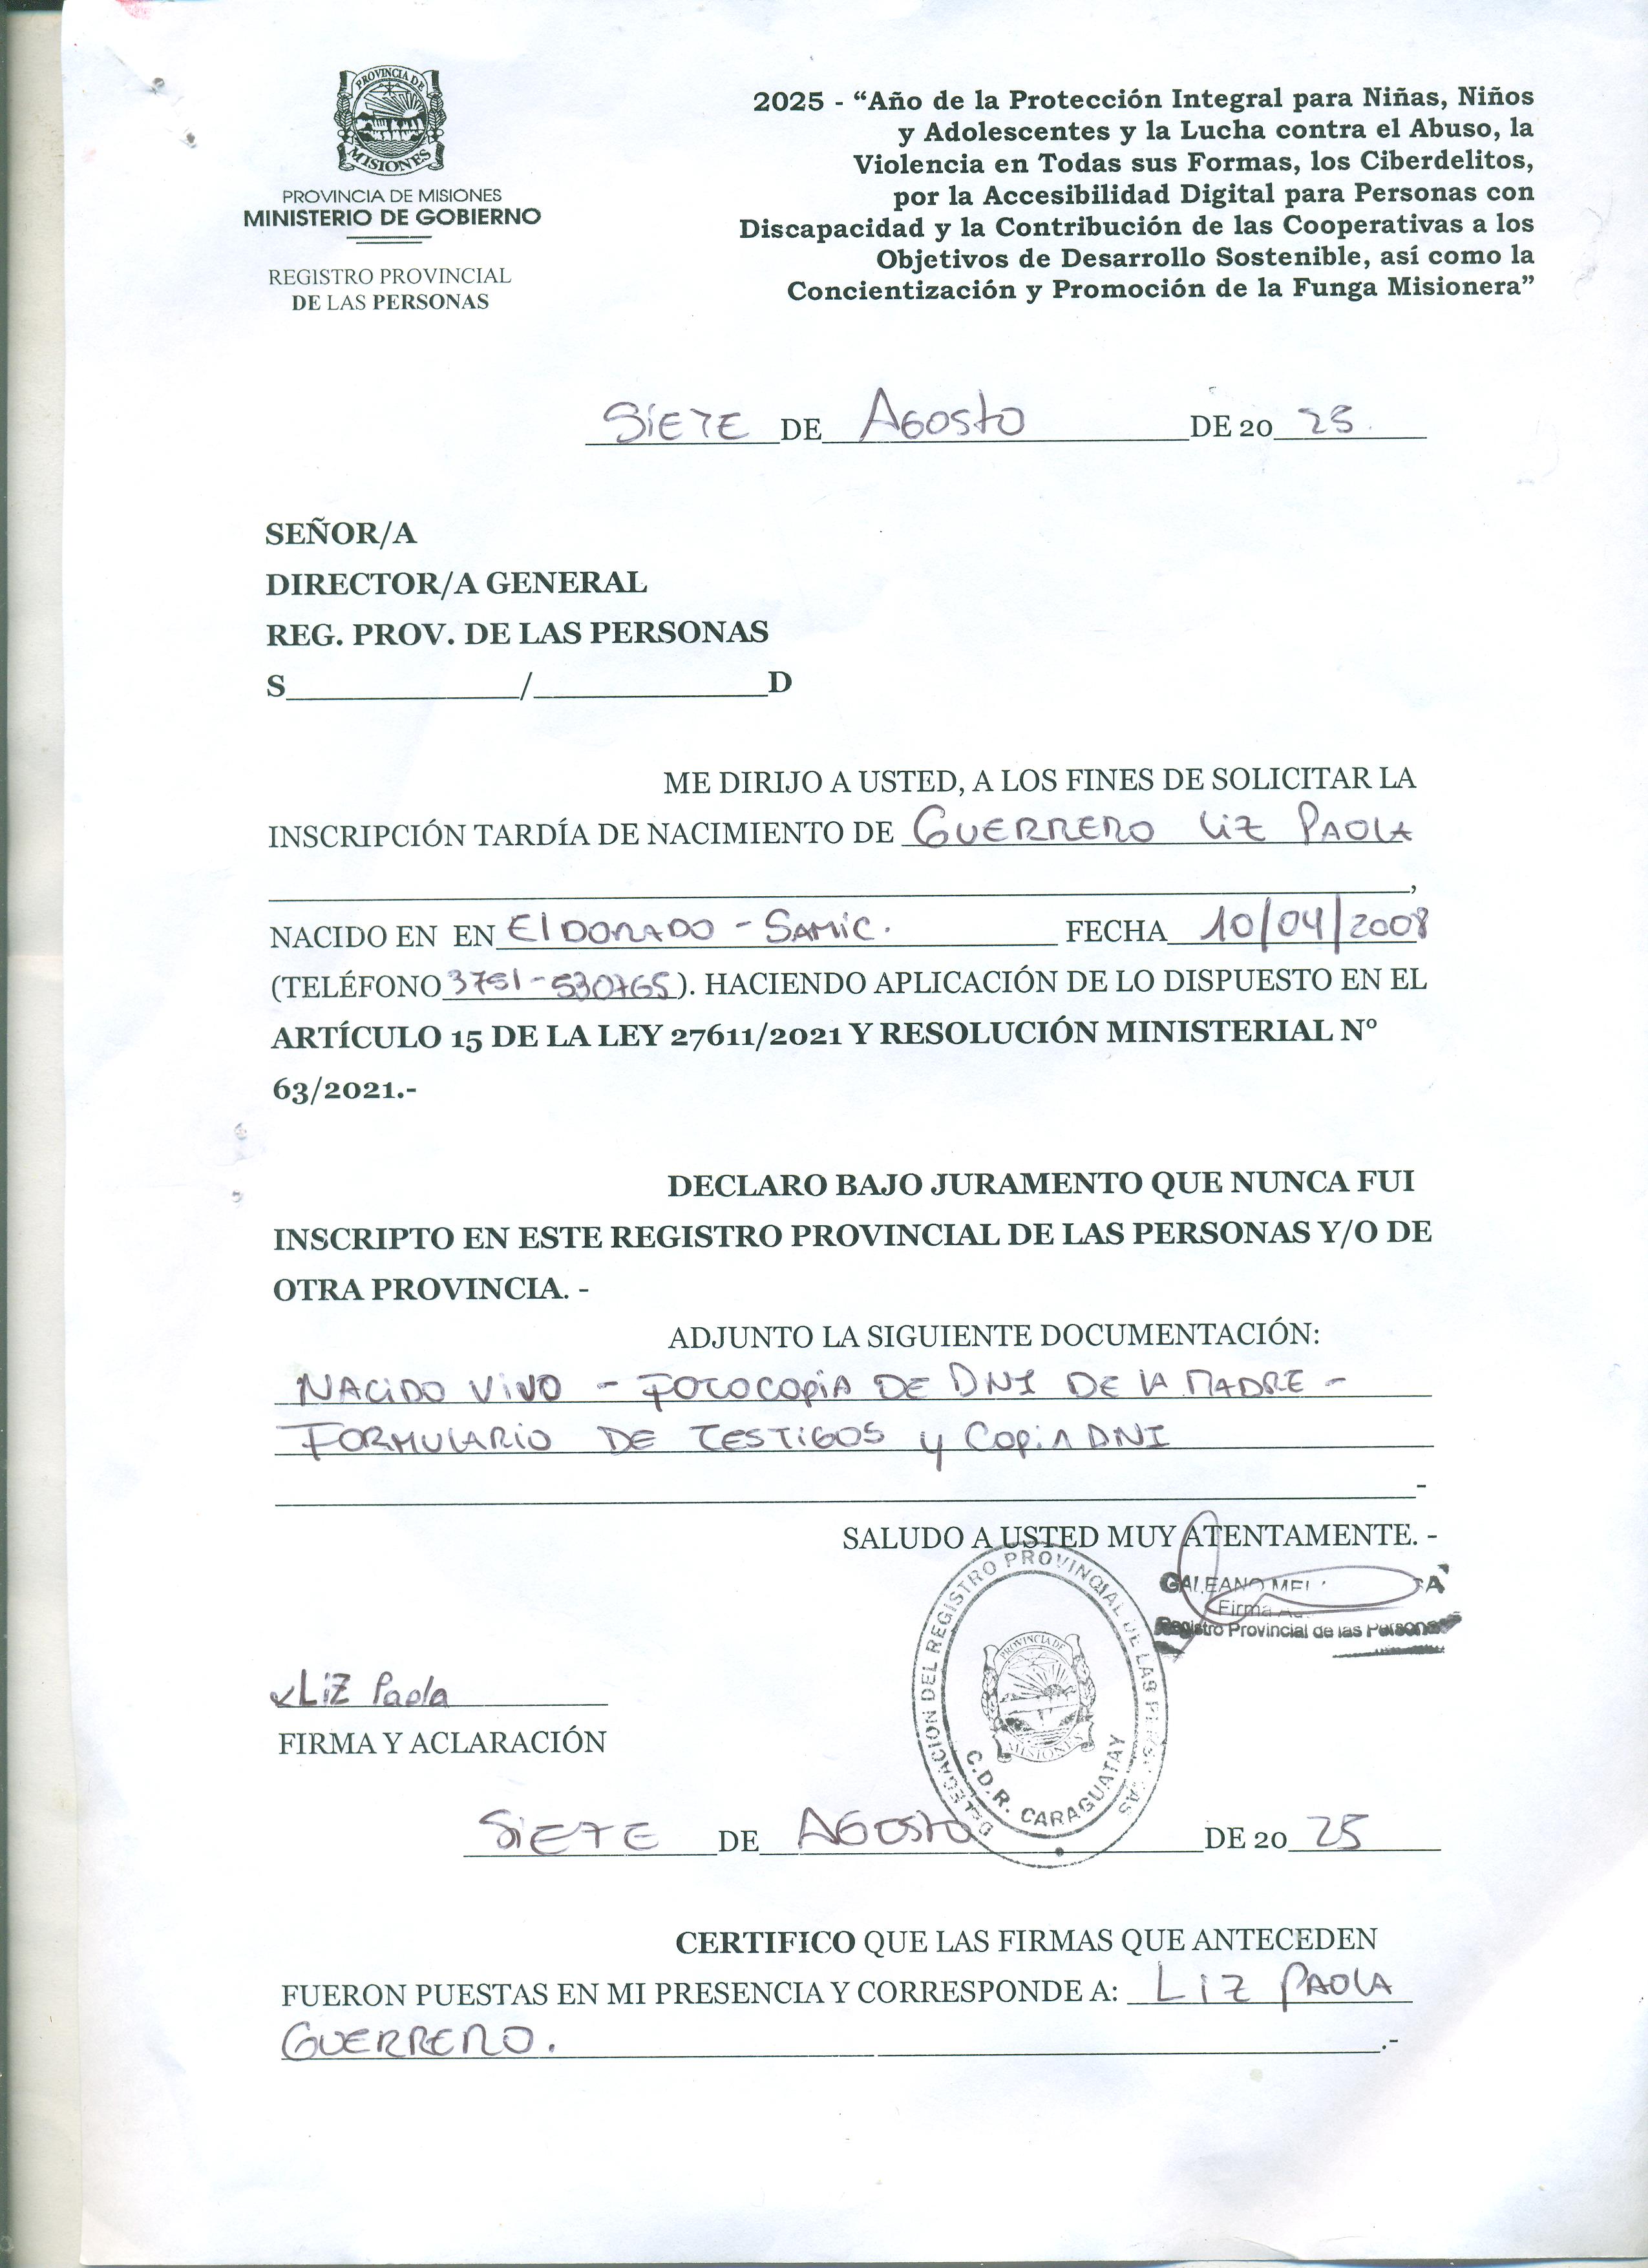 PROVINCIA DE
MISIONES
PROVINCIA DE MISIONES
MINISTERIO DE GOBIERNO
REGISTRO PROVINCIAL
DE LAS PERSONAS
2025 - “Año de la Protección Integral para Niñas, Niños
y Adolescentes y la Lucha contra el Abuso, la
Violencia en Todas sus Formas, los Ciberdelitos,
por la Accesibilidad Digital para Personas con
Discapacidad y la Contribución de las Cooperativas a los
Objetivos de Desarrollo Sostenible, así como la
Concientización y Promoción de la Funga Misionera”
SiETE DE AGOSTO DE 20 25.
SEÑOR/A
DIRECTOR/A GENERAL
REG. PROV. DE LAS PERSONAS
S______________/______________D
ME DIRIJO A USTED, A LOS FINES DE SOLICITAR LA
INSCRIPCIÓN TARDÍA DE NACIMIENTO DE GUERRERO LiZ PAOLA
,
NACIDO EN EN ElDORADO - SAMiC. FECHA 10/04/2008
(TELÉFONO 3751-530765). HACIENDO APLICACIÓN DE LO DISPUESTO EN EL
ARTÍCULO 15 DE LA LEY 27611/2021 Y RESOLUCIÓN MINISTERIAL N°
63/2021.-
DECLARO BAJO JURAMENTO QUE NUNCA FUI
INSCRIPTO EN ESTE REGISTRO PROVINCIAL DE LAS PERSONAS Y/O DE
OTRA PROVINCIA. -
ADJUNTO LA SIGUIENTE DOCUMENTACIÓN:
NACiDO ViVO - FOTOCOPiA DE DNI DE LA MADRE -
FORMULARIO DE TESTiGOS y COPiA DNI
-
SALUDO A USTED MUY ATENTAMENTE. -
GALEANO
Firma
Registro Provincial de las Personas
DELEGACION DEL REGISTRO PROVINCIAL DE LAS PERSONAS
PROVINCIA DE
MISIONES
C.D.R. CARAGUATAY
LiZ Paola
FIRMA Y ACLARACIÓN
SiETE DE AGOSTO DE 20 25
CERTIFICO QUE LAS FIRMAS QUE ANTECEDEN
FUERON PUESTAS EN MI PRESENCIA Y CORRESPONDE A: LIZ PAOLA
GUERRERO. .-